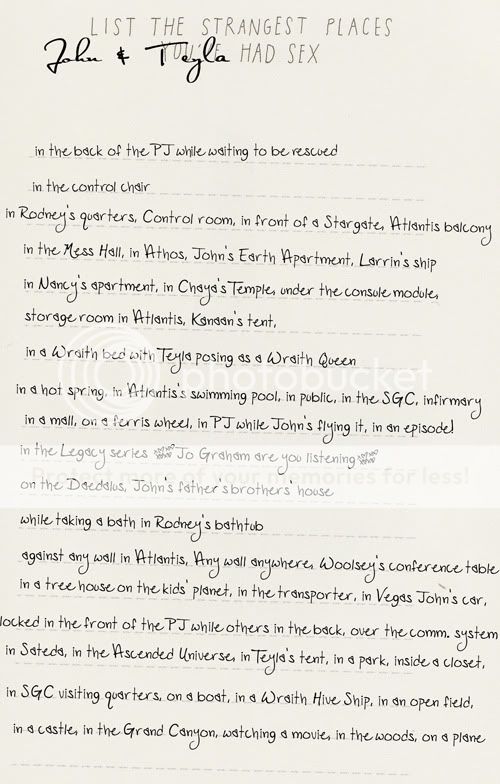 LIST THE STRANGEST PLACES
YOU'VE HAD SEX
John & Teyla
in the back of the PJ while waiting to be rescued
in the control chair
in Rodney's quarters, Control room, in front of a Stargate, Atlantis balcony
in the Mess Hall, in Athos, John's Earth Apartment, Larrin's ship
in Nancy's apartment, in Chaya's Temple, under the console module,
storage room in Atlantis, Kanaan's tent,
in a Wraith bed with Teyla posing as a Wraith Queen
photobucket
in a hot spring, in Atlantis's swimming pool, in public, in the SGC, infirmary
in a mall, on a ferris wheel, in PJ while John's flying it, in an episode!
in the Legacy series Jo Graham are you listening
Protect more of your memories for less!
on the Daedalus, John's father's brothers' house
while taking a bath in Rodney's bathtub
against any wall in Atlantis, Any wall anywhere, Woolsey's conference table
in a tree house on the kids' planet, in the transporter, in Vegas John's car,
locked in the front of the PJ while others in the back, over the comm. system
in Sateda, in the Ascended Universe, in Teyla's tent, in a park, inside a closet,
in SGC visiting quarters, on a boat, in a Wraith Hive Ship, in an open field,
in a castle, in the Grand Canyon, watching a movie, in the woods, on a plane